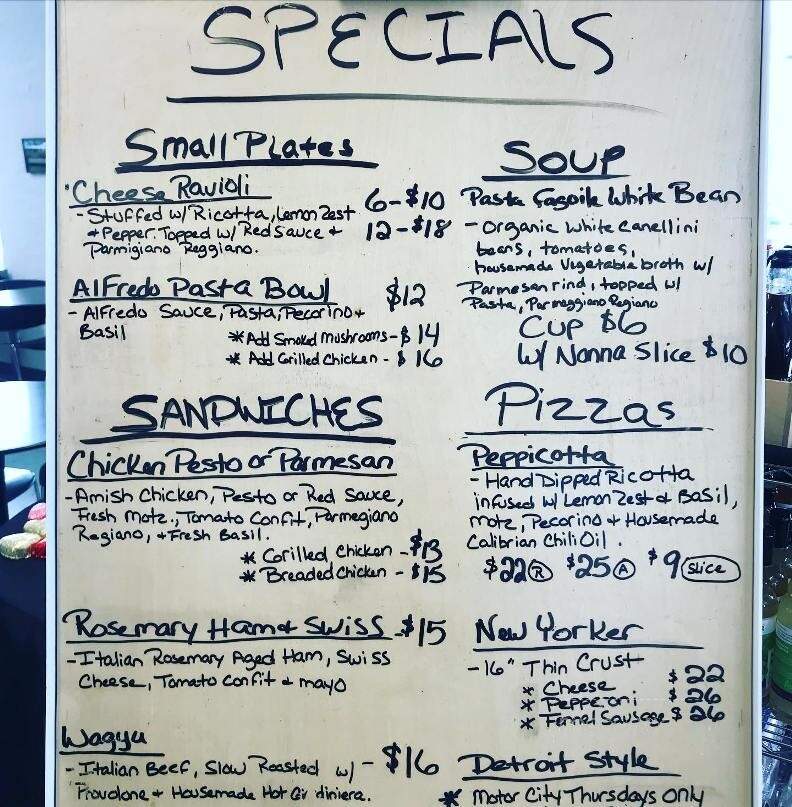 SPECIALS
Small Plates
Cheese Ravioli
6-$10
- Stuffed w/ Ricotta, Lemon Zest
+ Pepper. Topped w/ Red Sauce +
12-$18
Parmigiano Reggiano.
Alfredo Pasta Bowl $12
- Alfredo Sauce, Pasta, Pecorino +
Basil
* Add Smoked Mushrooms - $14
* Add Grilled Chicken - $16
SANDWICHES
Chicken Pesto or Parmesan
- Amish Chicken, Pesto or Red Sauce,
Fresh Motz., Tomato Confit, Parmegiano
Regiano, + Fresh Basil.
* Grilled Chicken - $13
* Breaded Chicken - $15
Rosemary Ham + Swiss - $15
- Italian Rosemary Aged Ham, Swiss
Cheese, Tomato Confit + mayo
Wagyu
- Italian Beef, Slow Roasted w/ - $16
Provolone + Housemade Hot Giardiniera.
Soup
Pasta Fagoile White Bean
- Organic White Canellini
beans, tomatoes,
housemade Vegetable broth w/
Parmesan rind, topped w/
Pasta, Parmeggiano Regiano
Cup $6
w/ Nonna Slice $10
Pizzas
Peppicotta
- Hand Dipped Ricotta
infused w/ Lemon Zest + Basil,
motz, Pecorino + Housemade
Calibrian Chili Oil.
$22 R $25 A $9 slice
New Yorker
- 16" Thin Crust
* Cheese $22
* Pepperoni $26
* Fennel Sausage $26
Detroit Style
* Motor City Thursdays Only